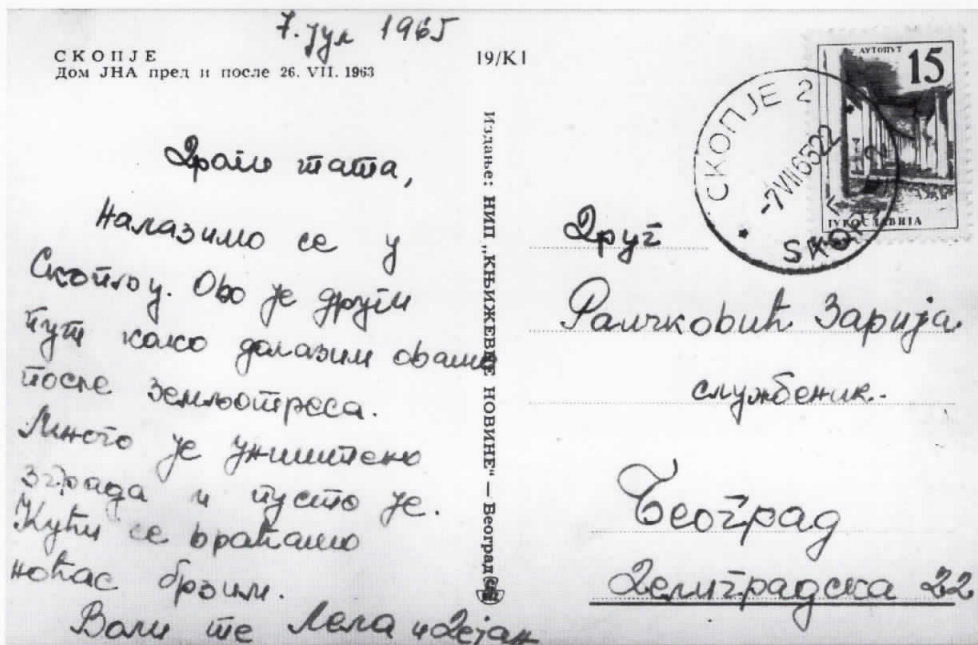 7. јул 1965
СКОПЈЕ
Дом ЈНА пред и после 26. VII. 1963
19/К1
Драги тата,
Налазимо се у
Скопљу. Ово је други
пут како долазим овамо
после земљотреса.
Много је уништено
зграда и пусто је.
Кући се враћамо
ноћас брзим.
Воли те Лела и Дејан
Издање: НИП „КЊИЖЕВНЕ НОВИНЕ“ — Београд
АУТОПУТ
15
ЈУГОСЛАВИЈА
СКОПЈЕ 2
-7 VII 65 22
Друг
Раичковић Зарија
службеник.
Београд
Делиградска 22